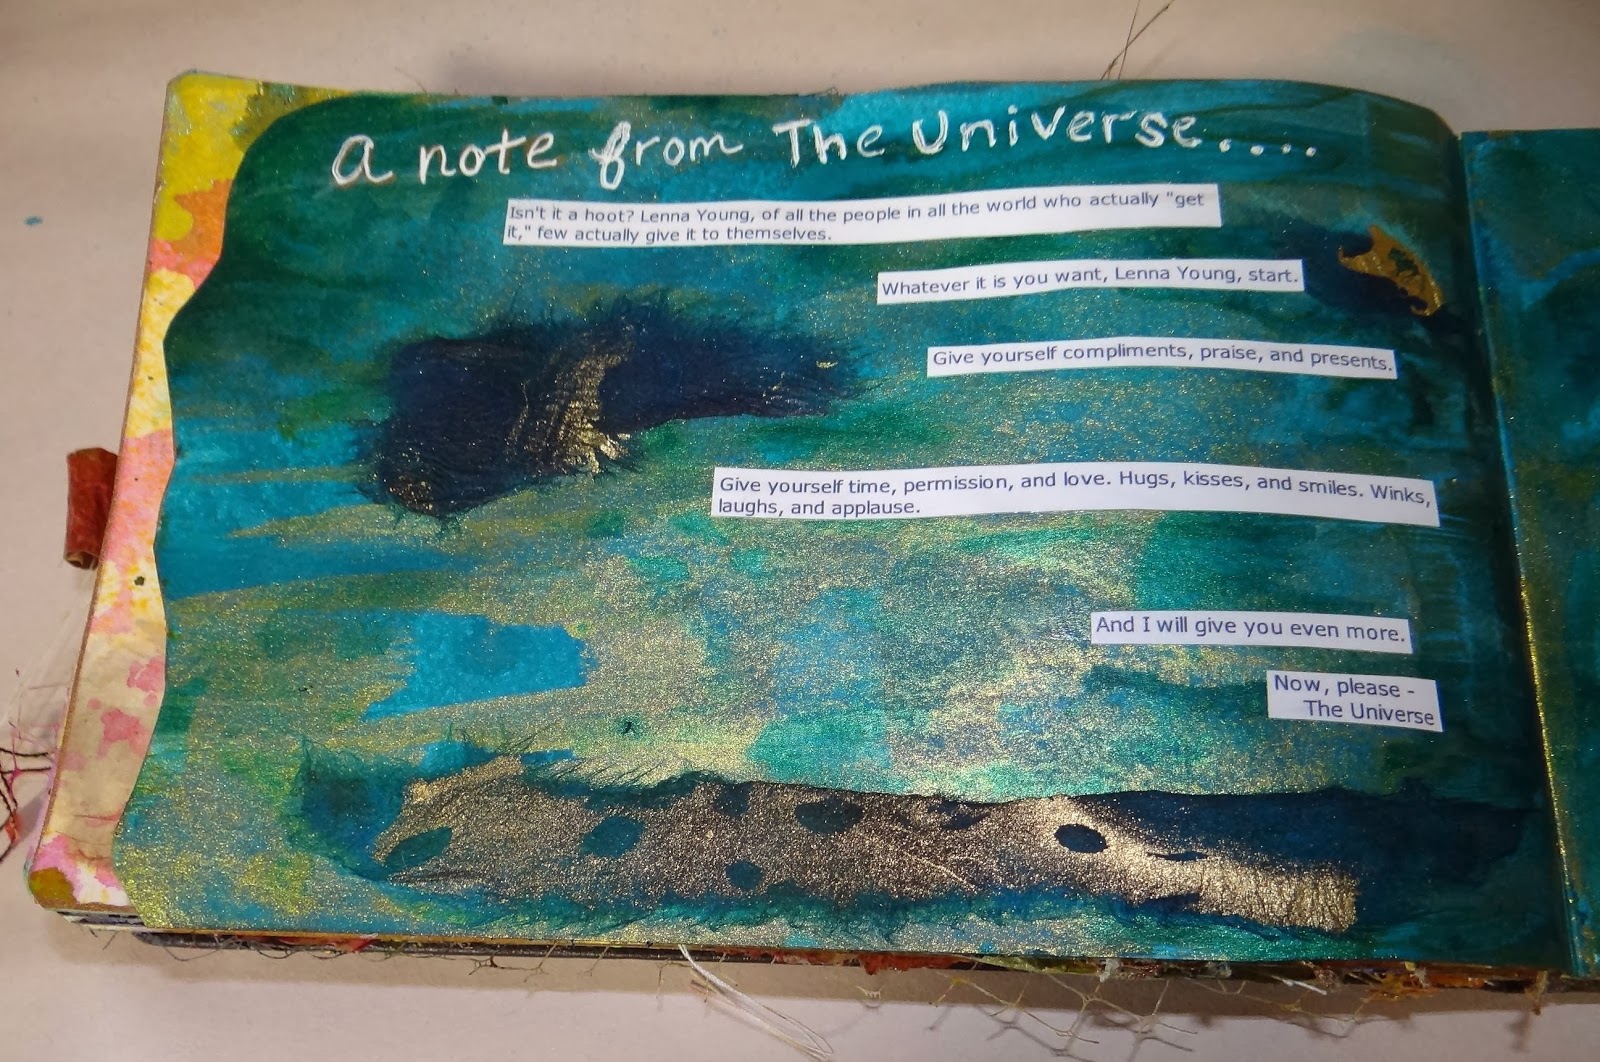 a note from The Universe....
Isn't it a hoot? Lenna Young, of all the people in all the world who actually "get
it," few actually give it to themselves.
Whatever it is you want, Lenna Young, start.
Give yourself compliments, praise, and presents.
Give yourself time, permission, and love. Hugs, kisses, and smiles. Winks,
laughs, and applause.
And I will give you even more.
Now, please -
The Universe